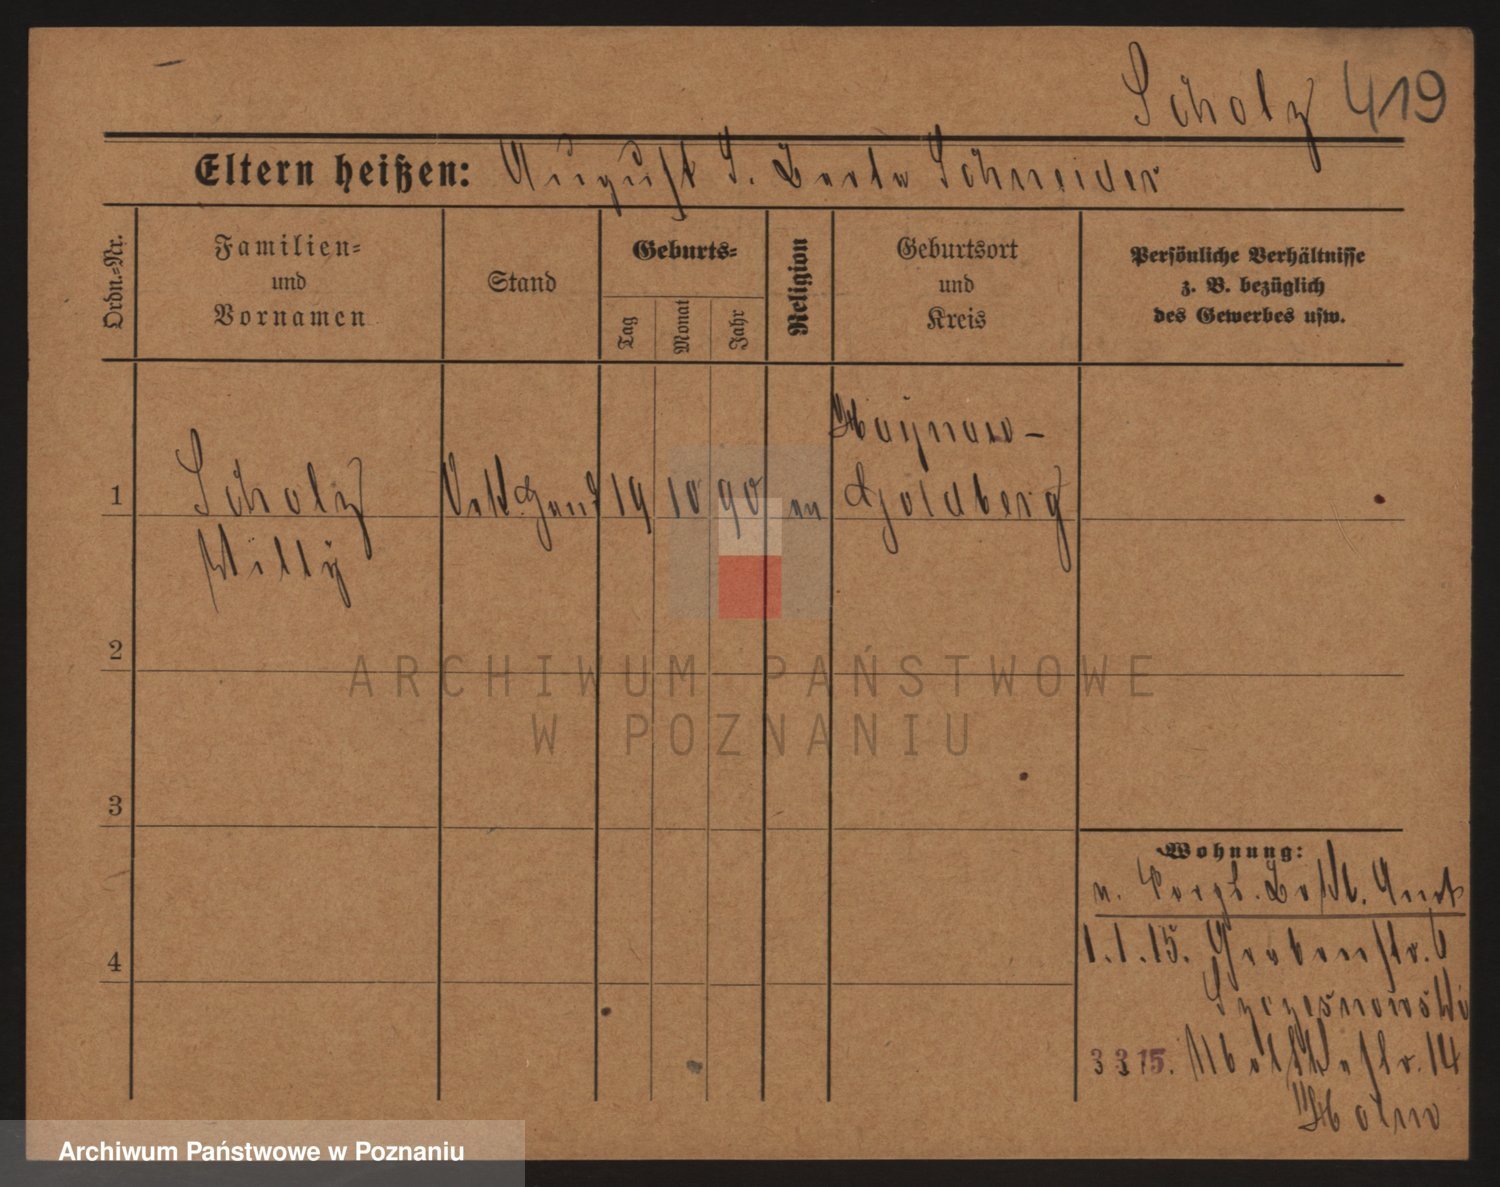 Scholz 419
Eltern heißen: August S. Berta Schneider
Ordn.-Nr.
Familien-
und
Vornamen
Stand
Geburts-
Tag
Monat
Jahr
Religion
Geburtsort
und
Kreis
Persönliche Verhältnisse
z. B. bezüglich
des Gewerbes usw.
Haynau-
1 Scholz 19 10 90 ev Goldberg
Willy
2
3
4
Wohnung:
1.1.15. Grabenstr. 6
Szczesnowski
3 3 15. Moltkestr. 14
ARCHIWUM PAŃSTWOWE
W POZNANIU
Archiwum Państwowe w Poznaniu